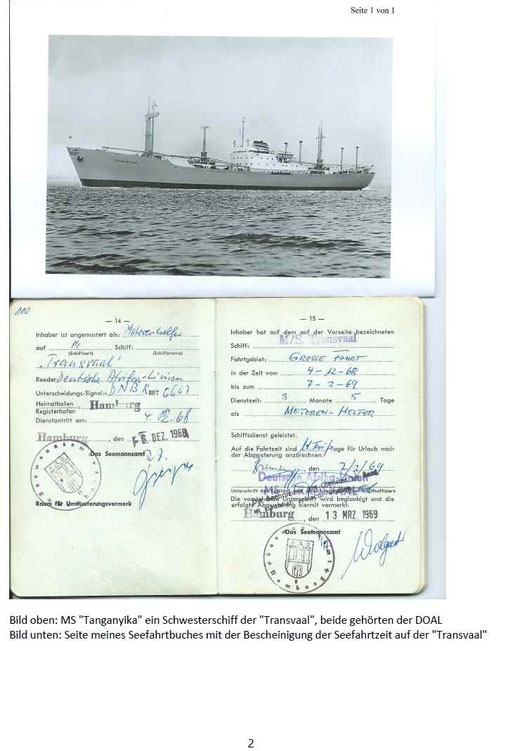 Seite 1 von 1
010
— 14 —
Inhaber ist angemustert als: Motorenhelfer
auf M Schiff:
(Schiffsart) (Schiffsname)
"Transvaal"
Reeder Deutsche Afrika-Linien
Unterscheidungs-Signal: DNBR BRT 6601
Heimathafen Hamburg
Registerhafen
Dienstantritt am: 4.12.68
Hamburg, den 6. DEZ. 1968
Das Seemannsamt
Raum für Ummusterungsvermerk
— 15 —
Inhaber hat auf dem auf der Vorseite bezeichneten
Schiff: M/S. Transvaal
Fahrtgebiet: GROSSE FAHRT
in der Zeit vom 4-12-68
bis zum 7-3-69
Dienstzeit: 3 Monate 5 Tage
als MOTOREN-HELFER
Schiffsdienst geleistet.
Auf die Fahrtzeit sind Tage für Urlaub nach
der Abmusterung anzurechnen.
Bremen, den 7/3/69
Deutsche Afrika-Linien
Die Unterschrift wird beglaubigt und die
erfolgte Abmusterung hiermit vermerkt.
Hamburg, den 13 MRZ. 1969
Das Seemannsamt
Bild oben: MS "Tanganyika" ein Schwesterschiff der "Transvaal", beide gehörten der DOAL
Bild unten: Seite meines Seefahrtbuches mit der Bescheinigung der Seefahrtzeit auf der "Transvaal"
2